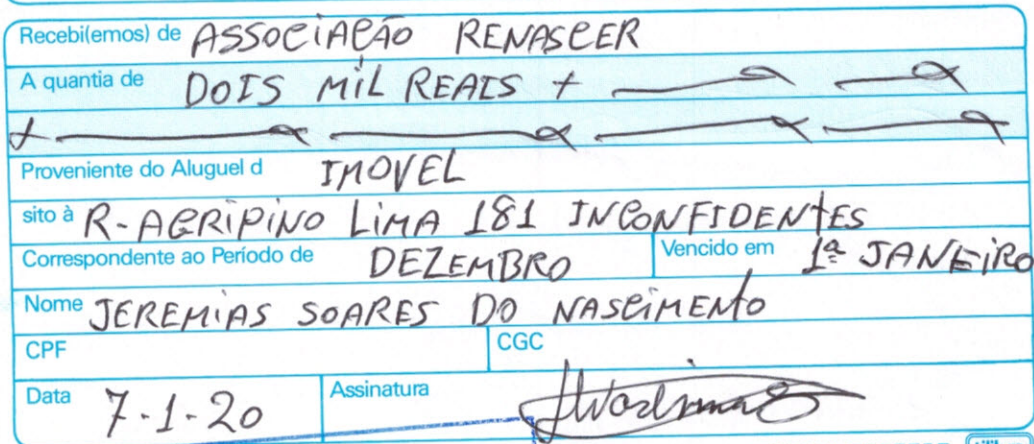 Recebi(emos) de ASSOCIAÇÃO RENASCER
A quantia de DOIS MIL REAIS
Proveniente do Aluguel d IMOVEL
sito à R-AGRIPINO LIMA 181 INCONFIDENTES
Correspondente ao Período de DEZEMBRO Vencido em 1ª JANEIRO
Nome JEREMIAS SOARES DO NASCIMENTO
CPF CGC
Data 7-1-20 Assinatura